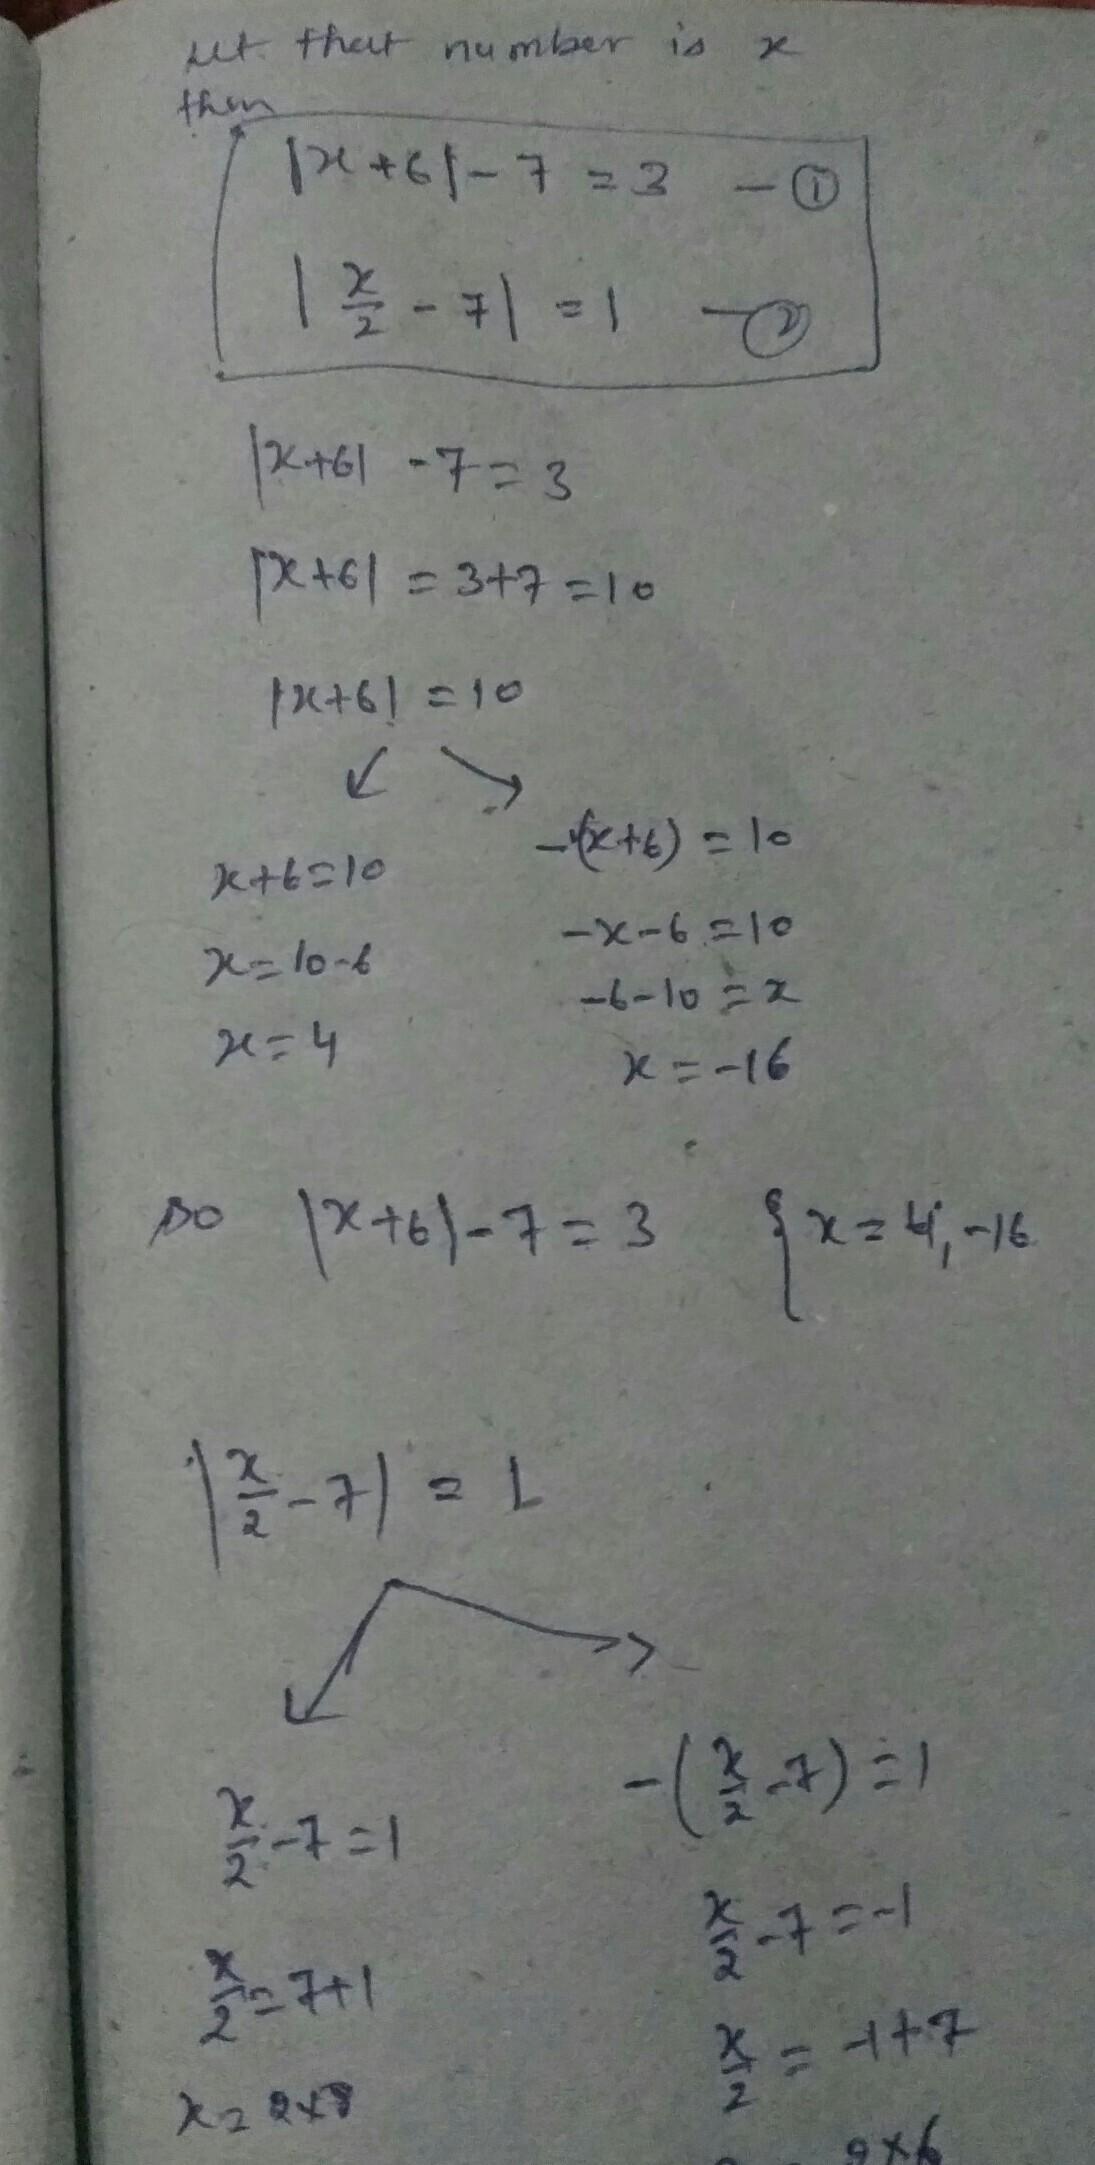 Let that number is x
then
|x+6|-7 = 3 - ①
|x/2 - 7| = 1 - ②
|x+6| -7 = 3
|x+6| = 3+7 = 10
|x+6| = 10
x+6=10
x=10-6
x=4
-(x+6) = 10
-x-6=10
-6-10=x
x=-16
so |x+6|-7=3 { x=4,-16
|x/2-7| = 1
x/2-7=1
x/2=7+1
x=2×8
-(x/2-7)=1
x/2-7=-1
x/2=-1+7
2×6